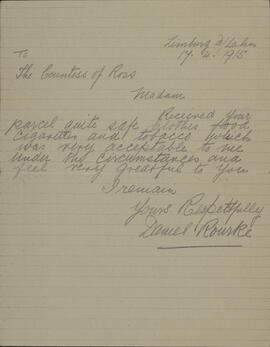 Limburg a/Lahn
17. 4. 1915
To
The Countess of Ross
Madam
Received your
parcel quite safe Clothes food
Cigarettes and tobacco which
was very acceptable to me
under the circumstances and
feel very greatful to you
I remain
Yours Respectfully
Daniel Rourke